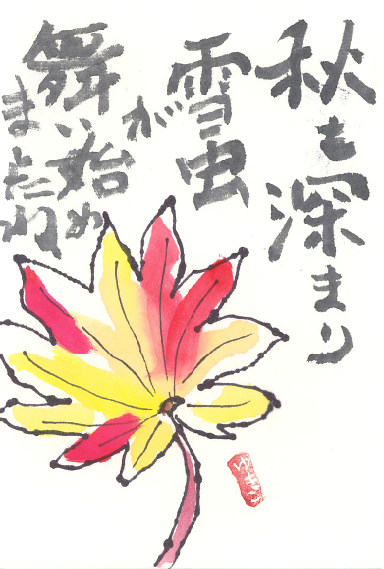 秋も深まり
雪虫
が
舞い始め
ましたね